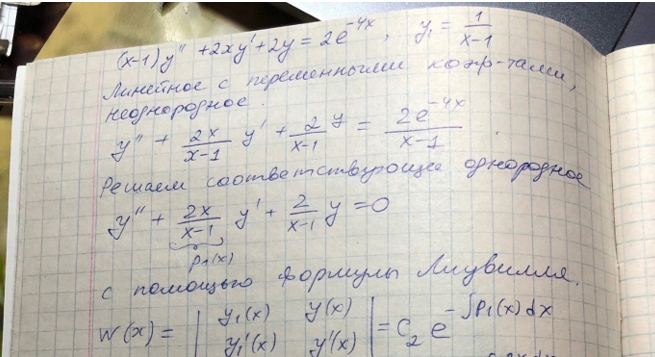 (x-1)y'' + 2xy' + 2y = 2e^{-4x}, y_1 = \frac{1}{x-1}
Линейное с переменными коэф-тами,
неоднородное.
y'' + \frac{2x}{x-1} y' + \frac{2}{x-1} y = \frac{2e^{-4x}}{x-1}
Решаем соответствующее однородное
y'' + \frac{2x}{x-1} y' + \frac{2}{x-1} y = 0
p_1(x)
с помощью формулы Лиувилля.
W(x) = \begin{vmatrix} y_1(x) & y(x) \\ y_1'(x) & y'(x) \end{vmatrix} = C_2 e^{-\int p_1(x) dx}